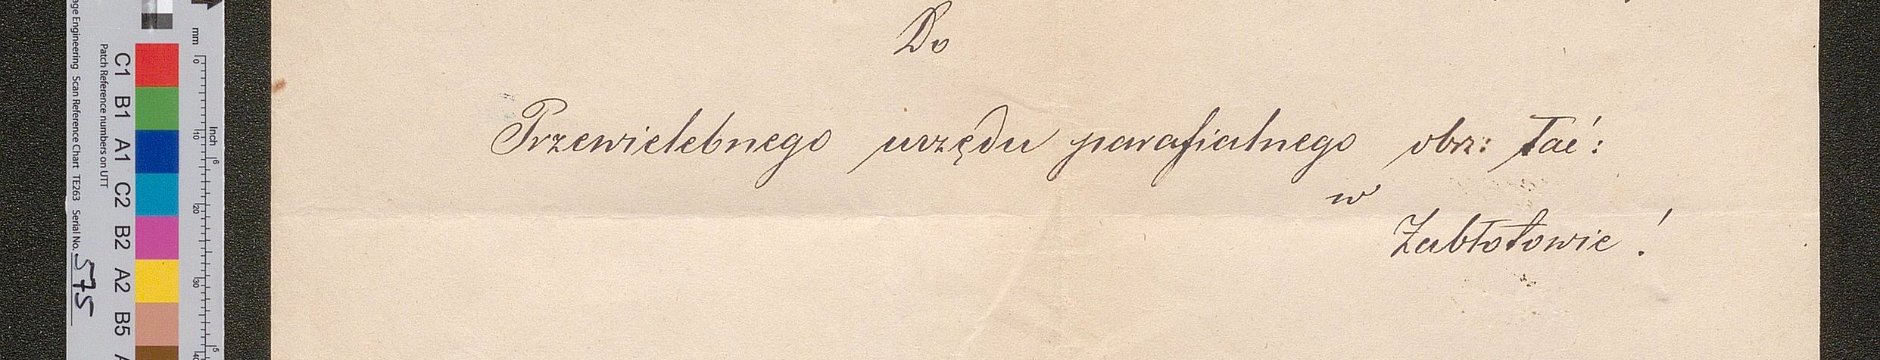 Do
Przewielebnego urzędu parafialnego obrz: łać:
w
Zabłotowie!
ge Engineering Scan Reference Chart TE263 Serial No. 575
Patch Reference numbers on UTT
C1 B1 A1 C2 B2 A2 B5
mm
0 10 20 30 40
inch